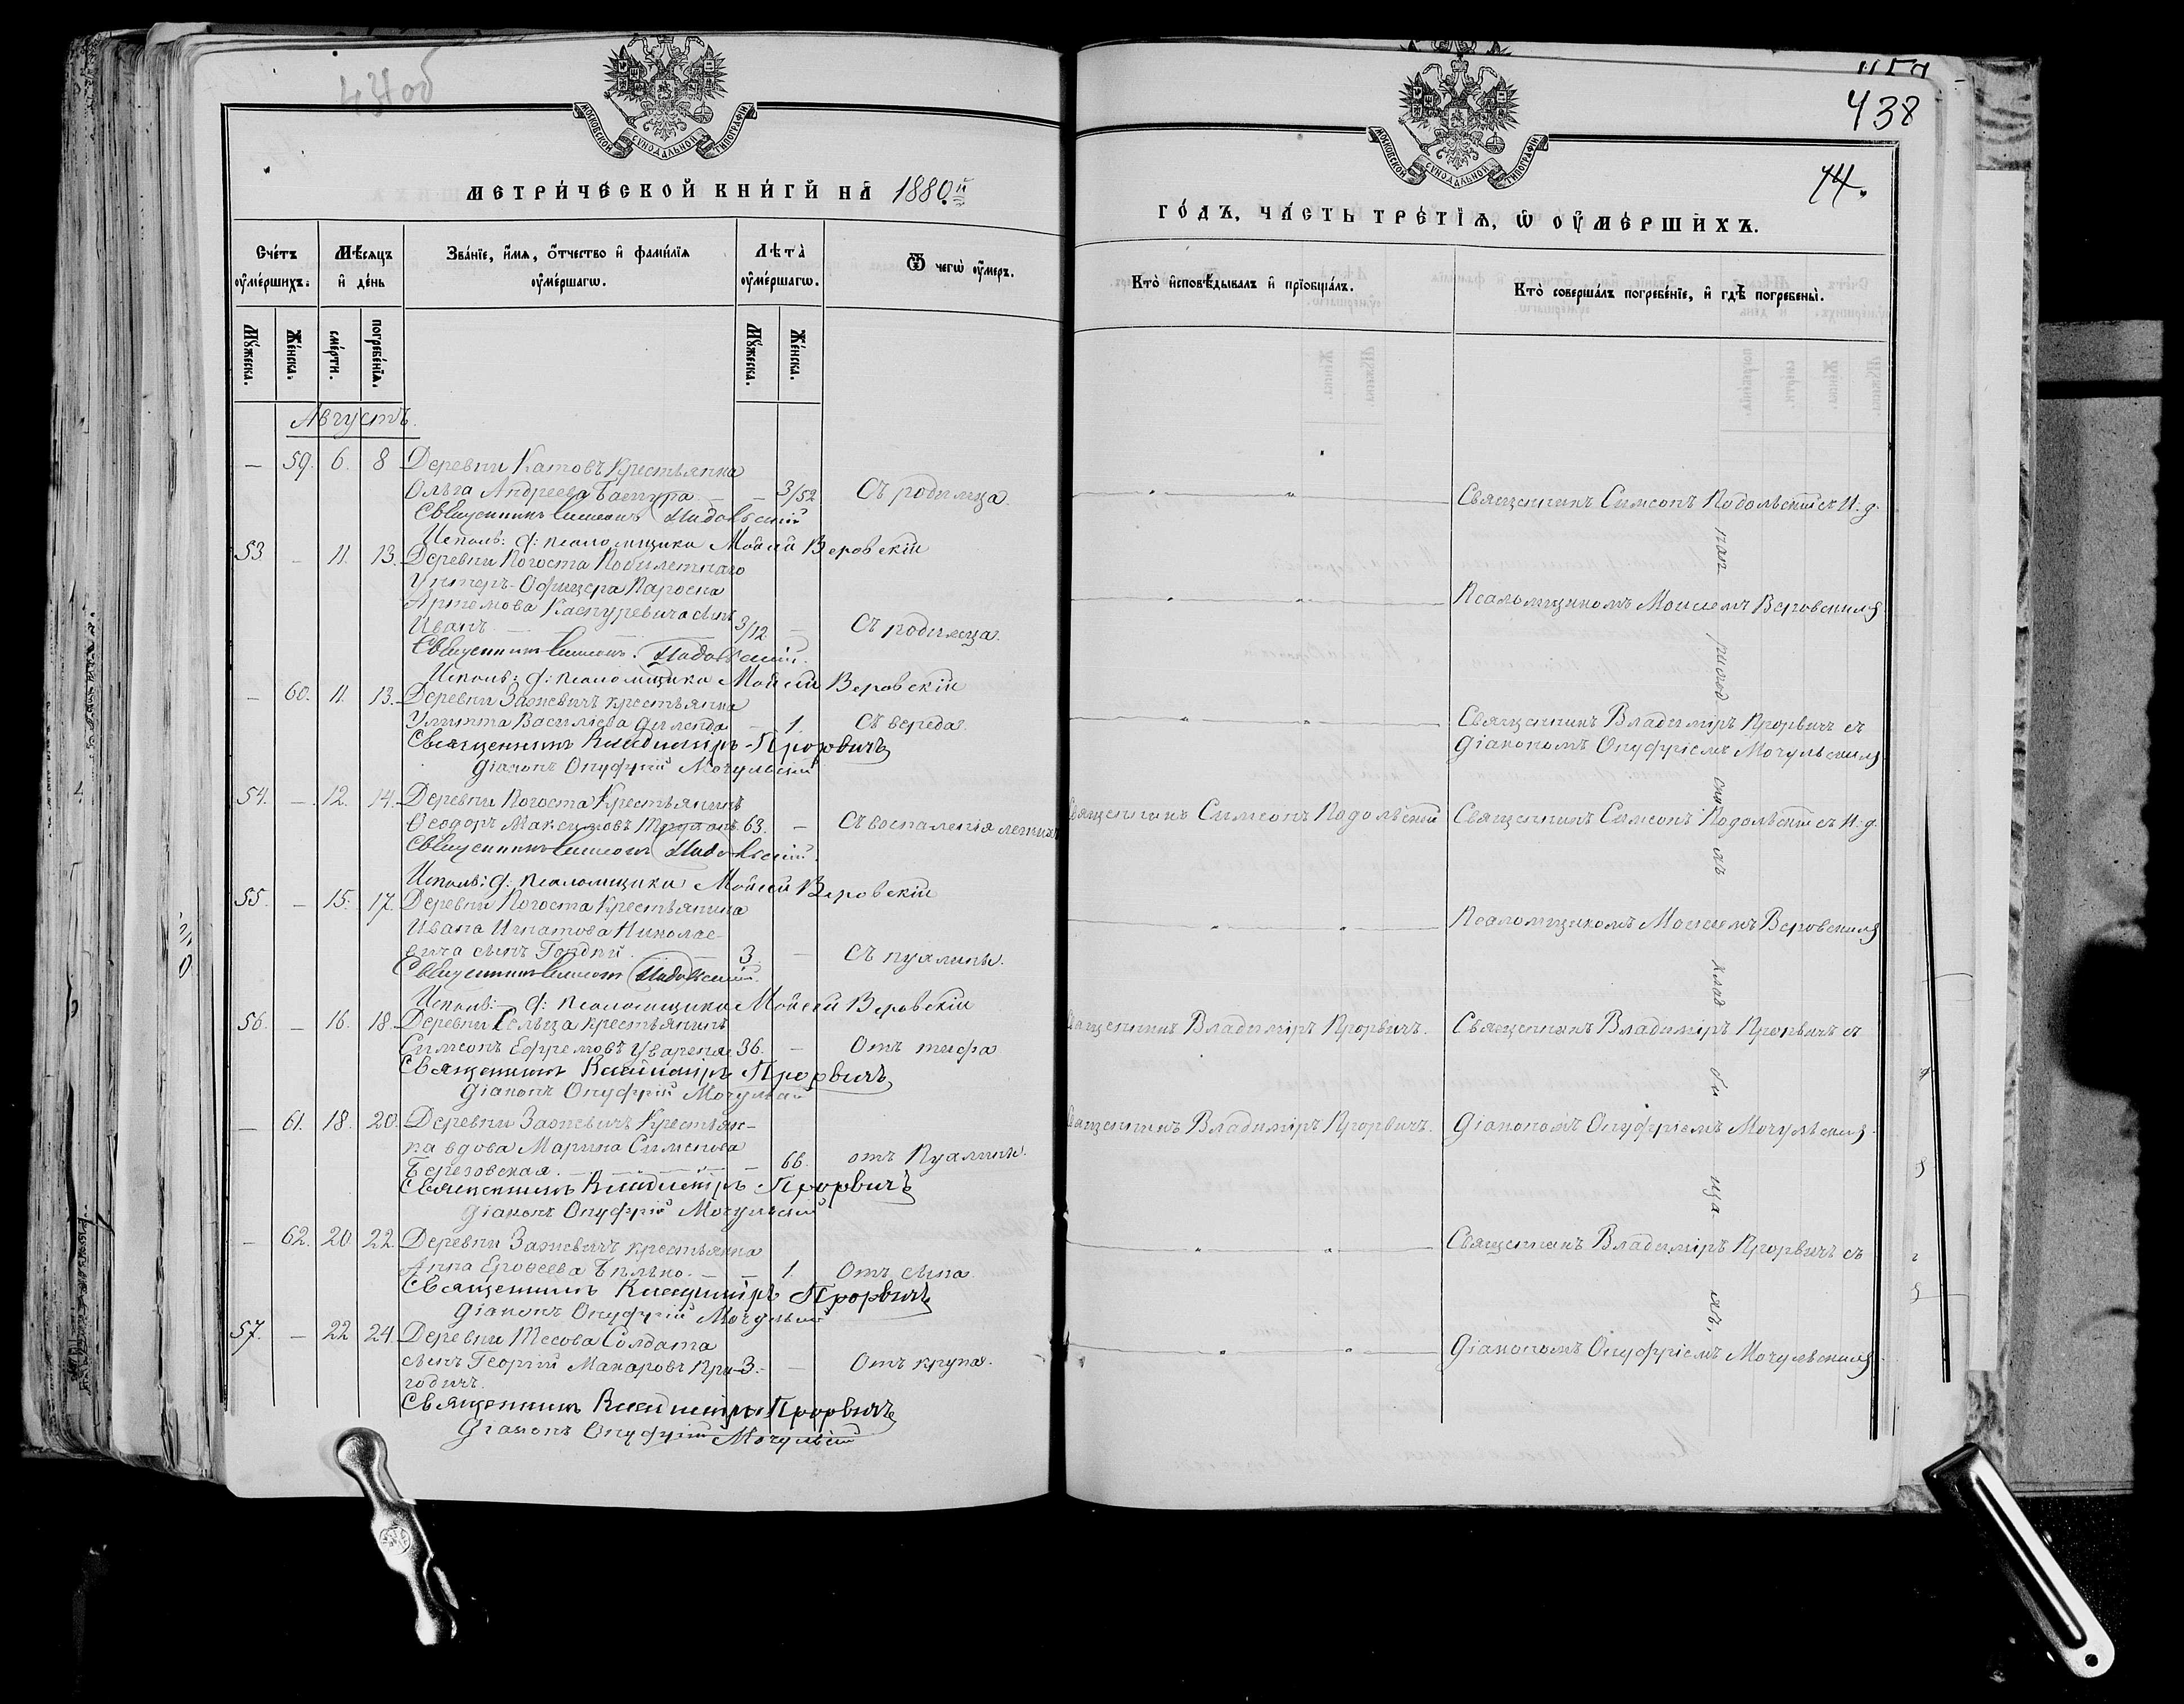 МОСКОВСКОЙ СѴНОДАЛЬНОЙ ТИПОГРАФІИ
МЕТРИ́ЧЕСКОЙ КНИ́ГИ НА 1880й
Сче́тъ оу҆ме́ршихъ.
Мѣ́сяцъ и҆ де́нь
Зва́нїе, и҆́мя, ѻ҆́тчество и҆ фамѝлїя оу҆ме́ршагѡ.
Лѣ́та оу҆ме́ршагѡ.
Ѿ чегѡ̀ оу҆́меръ.
Мꙋ́жеска.
Же́нска.
сме́рти.
погребе́нїя.
Мꙋ́жеска.
Же́нска.
Августъ.
— 59. 6. 8 Деревни Катовъ Крестьянка
Ольга Андреева — — 3/52 Съ родимца.
Священникъ Симеонъ Подольскій
Исполв: д: псаломщика Мойсей Веровскій
53 — 11. 13. Деревни Погоста
Унтеръ-Офицера
Артемова Каспуревича сынъ
Иванъ 3/12 — Съ родимца.
Священникъ Симеонъ Подольскій.
Исполв: д: псаломщика Мойсей Веровскій
— 60. 11. 13. Деревни Заževичъ крестьянка
Улитта Василіева — 1. Съ вереда.
Священникъ Владиміръ Прорвичъ
Діаконъ Онуфрій Мочульскій
54. — 12. 14. Деревни Погоста Крестьянинъ
Ѳеодоръ Максимовъ 63. — Съ воспаленія легкихъ
Священникъ Симеонъ Подольскій.
Исполв: д: псаломщика Мойсей Веровскій
55. — 15. 17. Деревни Погоста Крестьянина
Ивана Игнатова Николае-
вича сынъ Гордій. 3. — Съ пухлины.
Священникъ Симеонъ Подольскій.
Исполв: д: псаломщика Мойсей Веровскій
56. — 16. 18. Деревни Сельца крестьянинъ
Симеонъ Ефремовъ 36. — Отъ тифа
Священникъ Владиміръ Прорвичъ
Діаконъ Онуфрій Мочульскій
— 61. 18. 20. Деревни Заžевичъ Крестьян-
ка вдова Марина Сименова
Березовская. — 66. отъ Пухлины.
Священникъ Владиміръ Прорвичъ
Діаконъ Онуфрій Мочульскій
— 62. 20 22. Деревни Заžевичъ крестьянка
Анна Ероѳеева Бѣлько. — — 1. Отъ сыпа
Священникъ Владиміръ Прорвичъ
Діаконъ Онуфрій Мочульскій
57. — 22 24. Деревни Тесова Солдата
сынъ Георгій Макаровъ При- 3. — Отъ крупа.
годичъ.
Священникъ Владиміръ Прорвичъ
Діаконъ Онуфрій Мочульскій
438
74.
МОСКОВСКОЙ СѴНОДАЛЬНОЙ ТИПОГРАФІИ
ГО́ДЪ, ЧА́СТЬ ТРЕ́ТЇѦ, Ѡ҆ ОУ҆МЕ́РШИХЪ.
Кто̀ и҆сповѣ́дывалъ и҆ прїобща́лъ.
Кто̀ соверша́лъ погребе́нїе, и҆ гдѣ̀ погребены̀.
Священникъ Симеонъ Подольскій съ И. д.
Псаломщикомъ Моисеемъ Веровскимъ
Священникъ Владиміръ Прорвичъ съ
Діакономъ Онуфріемъ Мочульскимъ
Священникъ Симеонъ Подольскій Священникъ Симеонъ Подольскій съ И. д.
Псаломщикомъ Моисеемъ Веровскимъ
Священникъ Владиміръ Прорвичъ. Священникъ Владиміръ Прорвичъ съ
Священникъ Владиміръ Прорвичъ. Діакономъ Онуфріемъ Мочульскимъ
Священникъ Владиміръ Прорвичъ съ
Діакономъ Онуфріемъ Мочульскимъ
на приход скихъ клад би ща хъ.